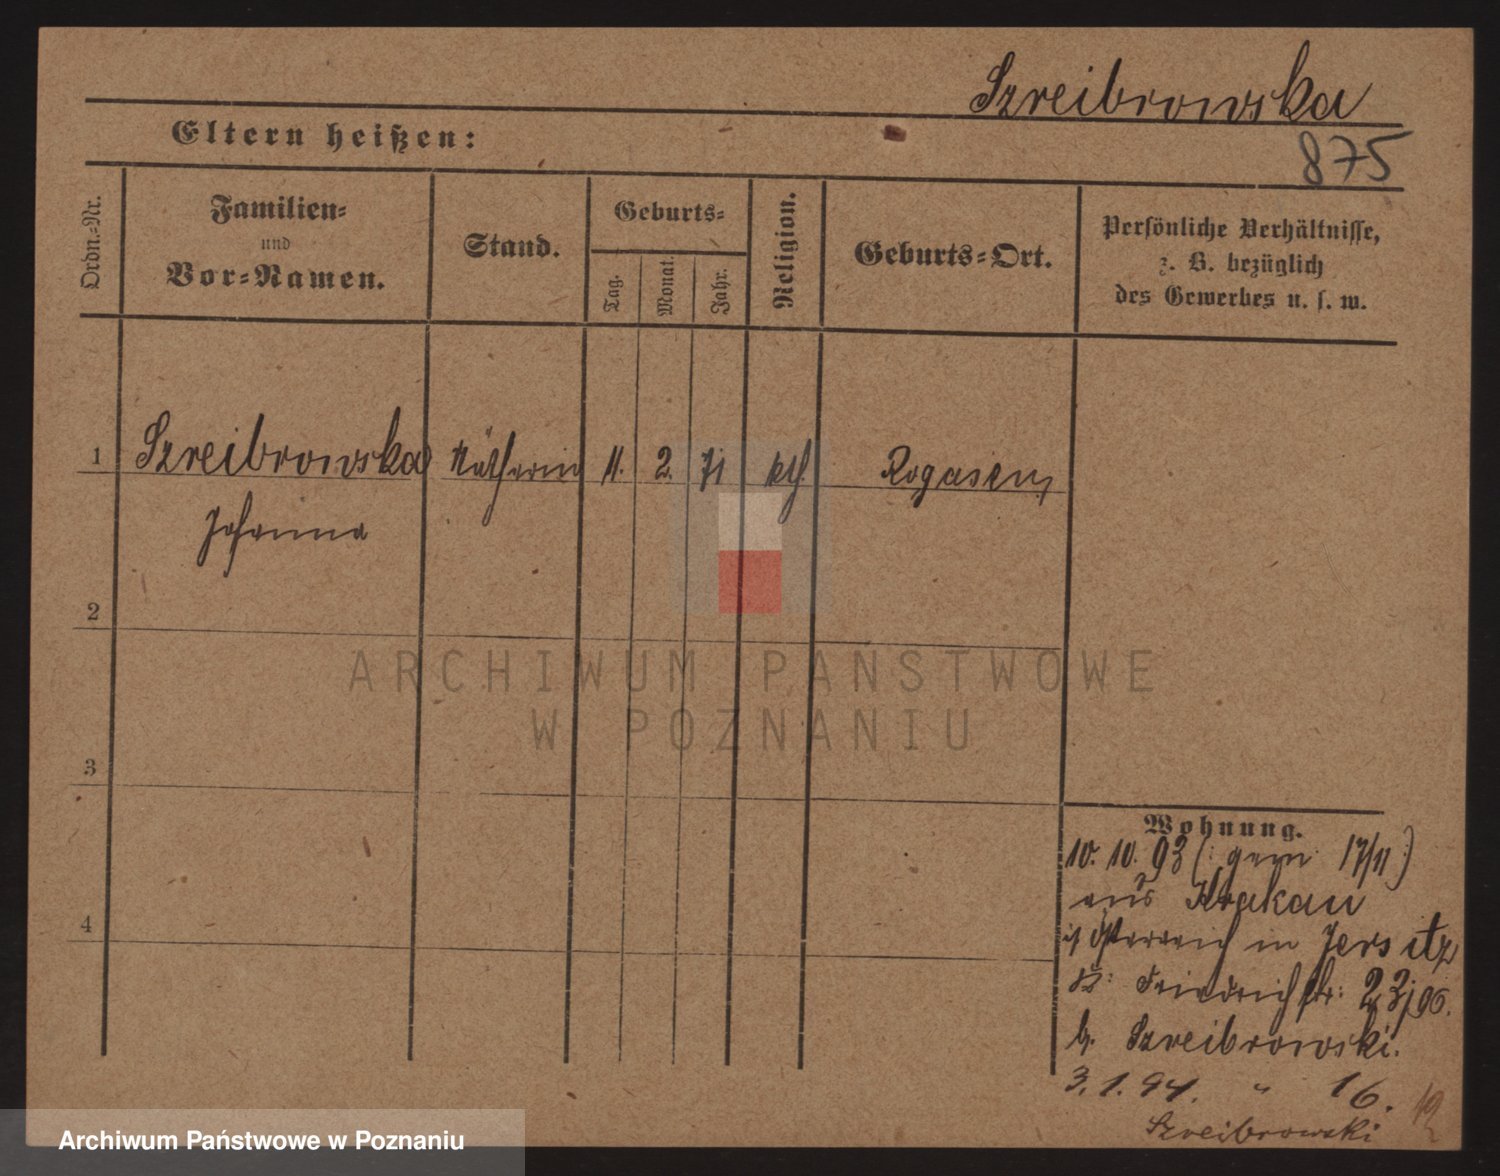 Szreibrowska
Eltern heißen:
875
Ordn.-Nr.
Familien-
und
Vor-Namen.
Stand.
Geburts-
Tag.
Monat.
Jahr.
Religion.
Geburts-Ort.
Persönliche Verhältnisse,
z. B. bezüglich
des Gewerbes u. s. w.
1 Szreibrowska Nätherin 11. 2. 71 kth. Rogasen
Johanna
2
3
4
Wohnung.
10. 10. 93 (: gem 17/11 :)
aus Krakau
Österreich in Jersitz
Friedrichstr: 23
b. Szreibrowski.
3. 1. 94. " 16.
Szreibrowski
ARCHIWUM PAŃSTWOWE
W POZNANIU
Archiwum Państwowe w Poznaniu